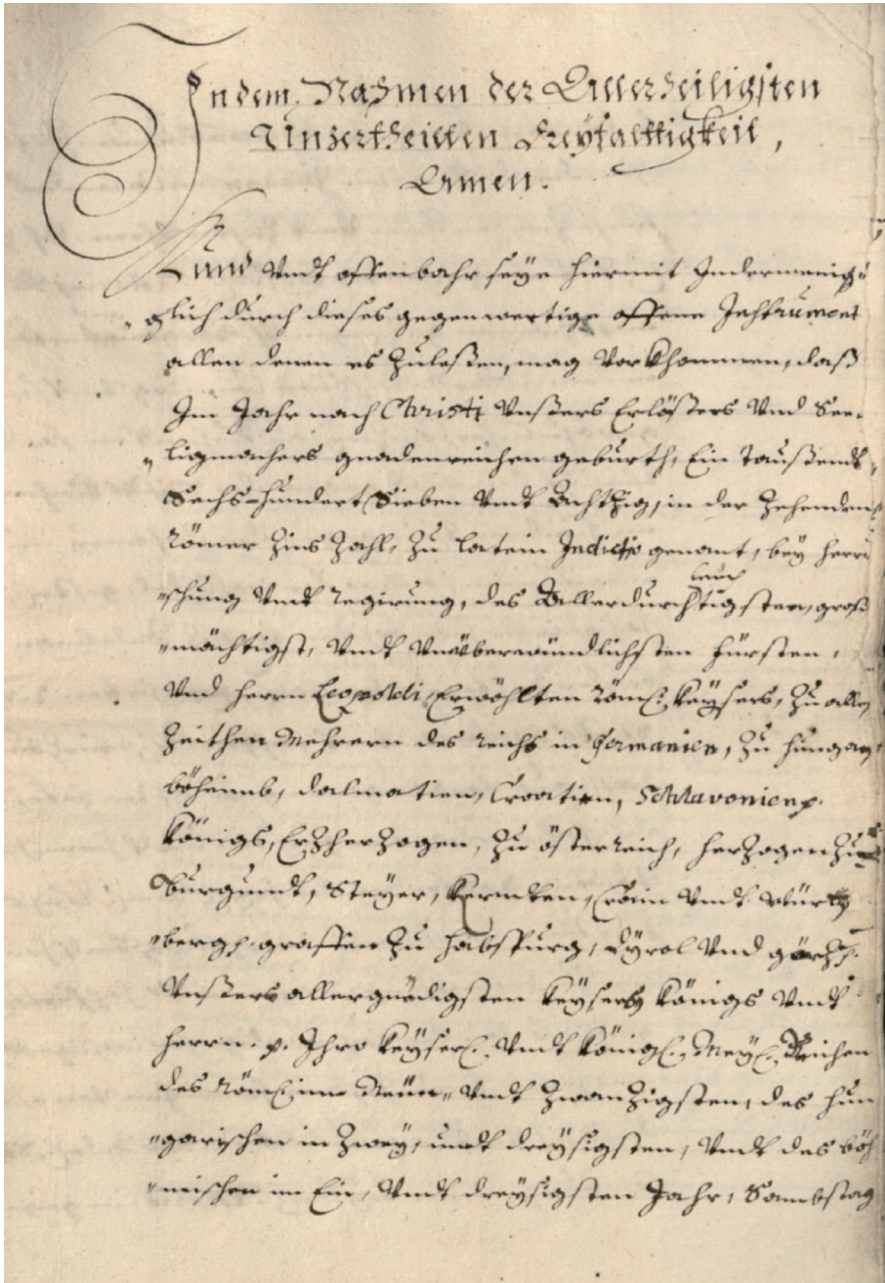 In dem Nahmen der Allerheiligsten
Unzertheilten Dreyfalttigkeit,
Amen.
Kund Vndt offenbahr seye hiermit Jedermänig-
glich durch dieses gegenwertige offene Instrument
allen denen es Zuleßen, mag Vorkhommen, daß
Im Jahr nach Christi Vnßers Erlößers Vnd See-
ligmachers gnadenreichen geburth, Ein Taußendt
Sechs-hundert Sieben Vndt Achtzig, in der Zehenden
Römer Zins Zahl, Zu latein Indictio genant, bey Herr-
schung Vndt Regirung, des Allerdurchleuchtigsten, groß
mächtigst, Vndt Vnüberwündlichsten Fürsten,
Vnd Herrn Leopoldi, Erwöhlten Röm: Keÿsers, Zu allen
Zeithen Mehrern des Reichs in Germanien, Zu Hungarn,
Böheimb, Dalmatien, Croatien, Schlavonien p.
Königs, ErzherZogen, Zu Österreich, HerZogen Zu
Burgundt, Steÿer, Kerndten, Crain Vndt Würtem
berg p. graffen Zu Habspurg, Tÿrol Vnd görz p.
Vnßers allergnädigsten Keÿsers Königs Vndt
Herrn. p. Ihro Keÿserl: Vndt Königl: Meÿ: Reichen
des Röm: im Neün- Vndt ZwanZigsten, des Hun
garischen in Zweÿ, undt dreÿsigsten, Vndt des Böh
mischen im Ein, Vndt dreÿsigsten Jahr, Sambstag